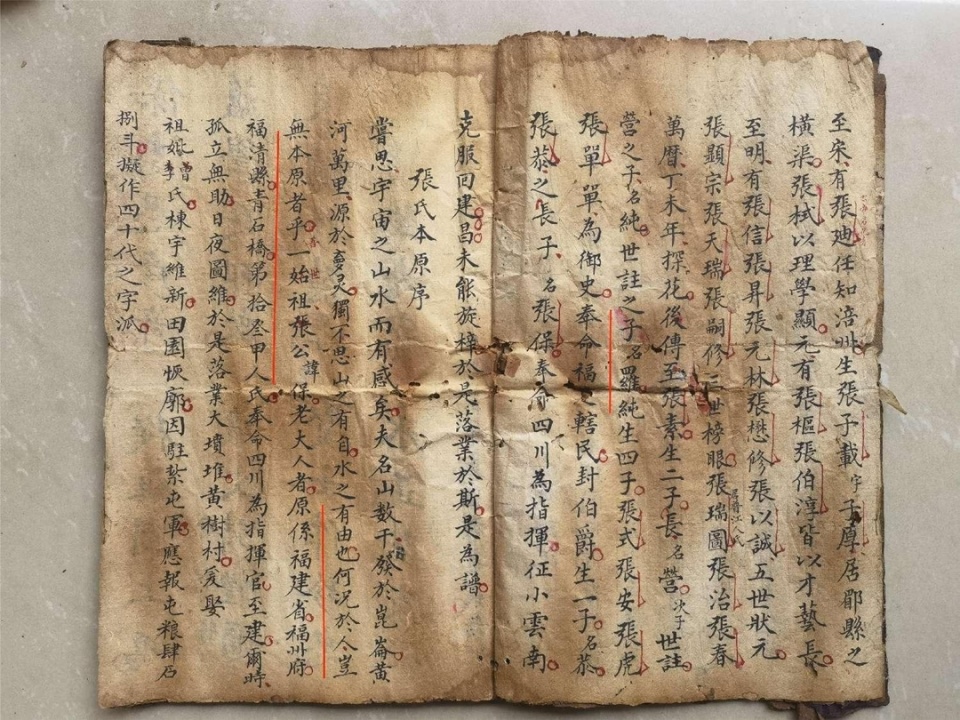 至宋有張廸任知涪州生張子載字子厚居郿縣之
橫渠張栻以理學顯元有張樞張伯淳皆以才藝長
至明有張信張昇張元林張懋修張以誠五世狀元
張顯宗張天瑞張嗣修三世榜眼張瑞圖張治張春
萬曆丁未年探花後傳至張素生二子長名營次子世註
營之子名純世註之子名羅純生四子張式張安張虎
張單單為御史奉命福轄民封伯爵生一子名恭
張恭之長子名張保奉命四川為指揮征小雲南
克服回建昌未能旋梓於是落業於斯是為譜
張氏本原序
嘗思宇宙之山水而有感矣夫名山數千發於崑崙黃
河萬里源於夢灵獨不思山之有自水之有由也何況於今豈
無本原者乎一世始祖張公諱保老大人者原係福建省福州府
福清縣青石橋第拾叁甲人氏奉命四川為指揮官至建爾時
孤立無助日夜圖維於是落業大墳堆黃樹村爰娶
祖妣曾氏棟宇維新田園恢廓因駐紮屯軍應報屯粮肆石
捌斗擬作四十代之字派